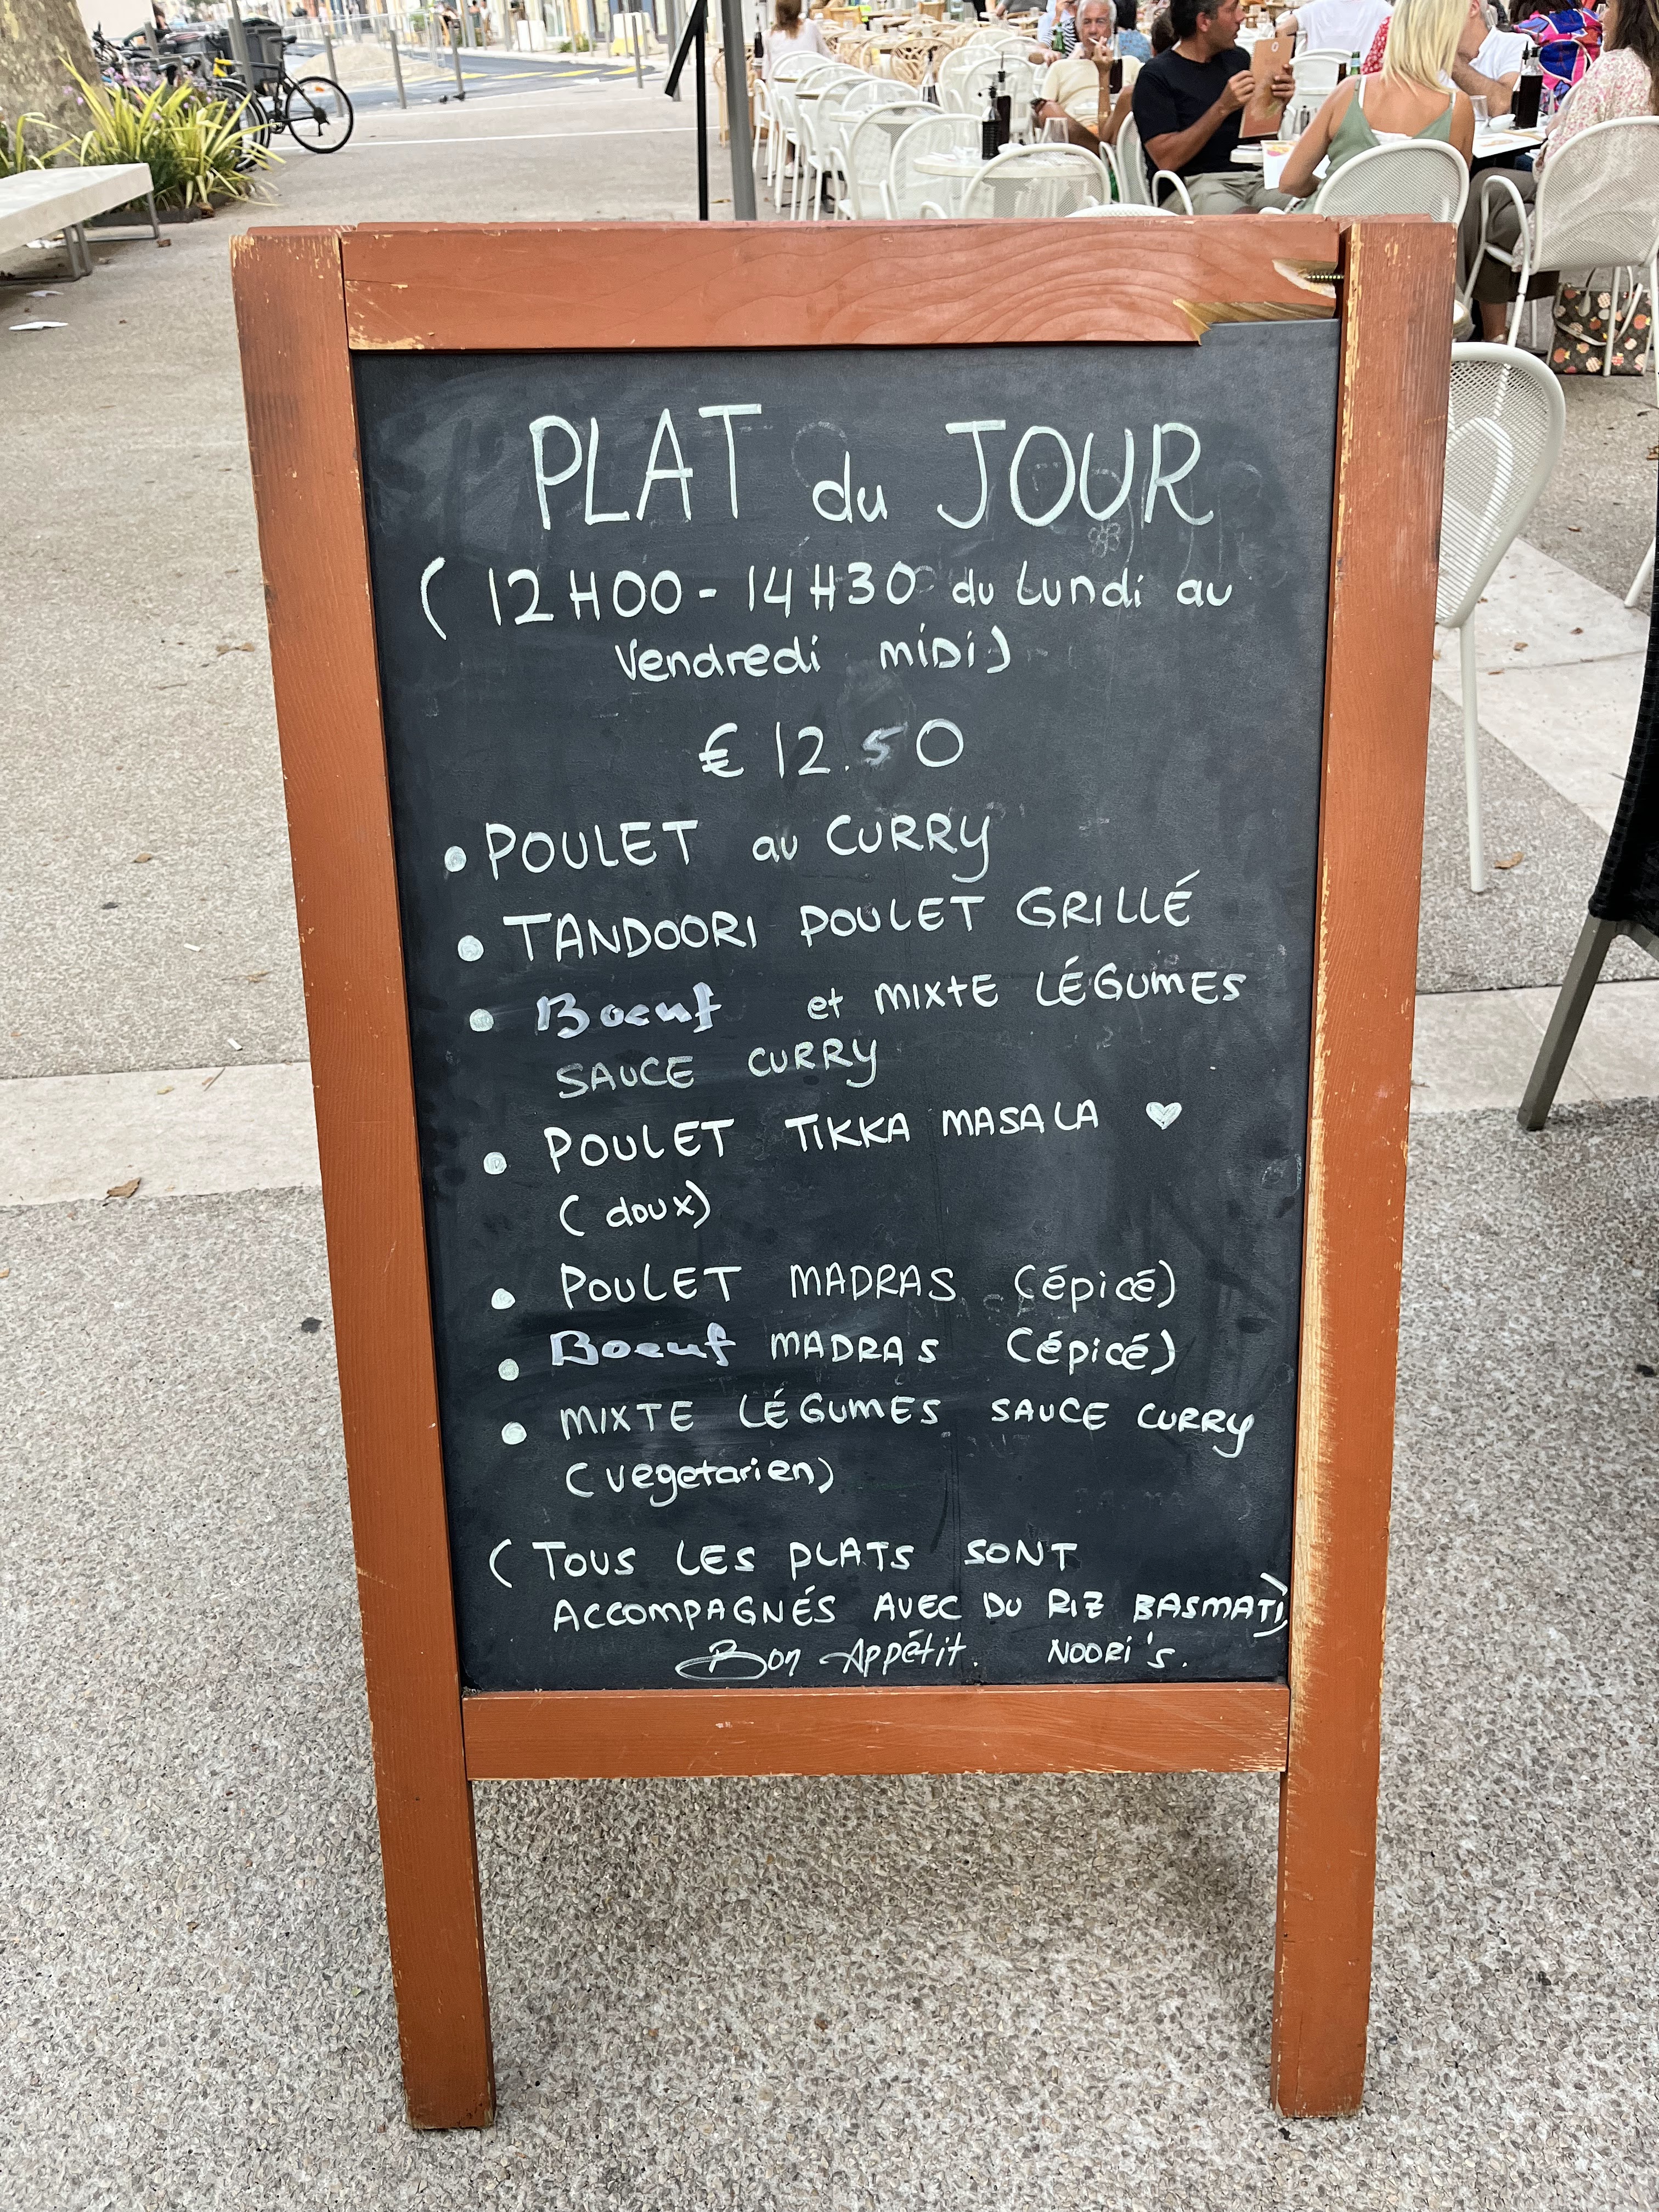 PLAT du JOUR
( 12H00 - 14H30 du Lundi au
Vendredi miDi)
€ 12.50
• POULET au CURRY
• TANDOORI POULET GRILLÉ
• Boeuf et MIXTE LÉGUMES
SAUCE CURRY
• POULET TIKKA MASALA ♥
( doux)
• POULET MADRAS (épicé)
• Boeuf MADRAS (épicé)
• MIXTE LÉGUMES SAUCE CURRY
(vegetarien)
( TOUS LES PLATS SONT
ACCOMPAGNÉS AVEC DU RIZ BASMATI)
Bon Appétit. NOORi's.